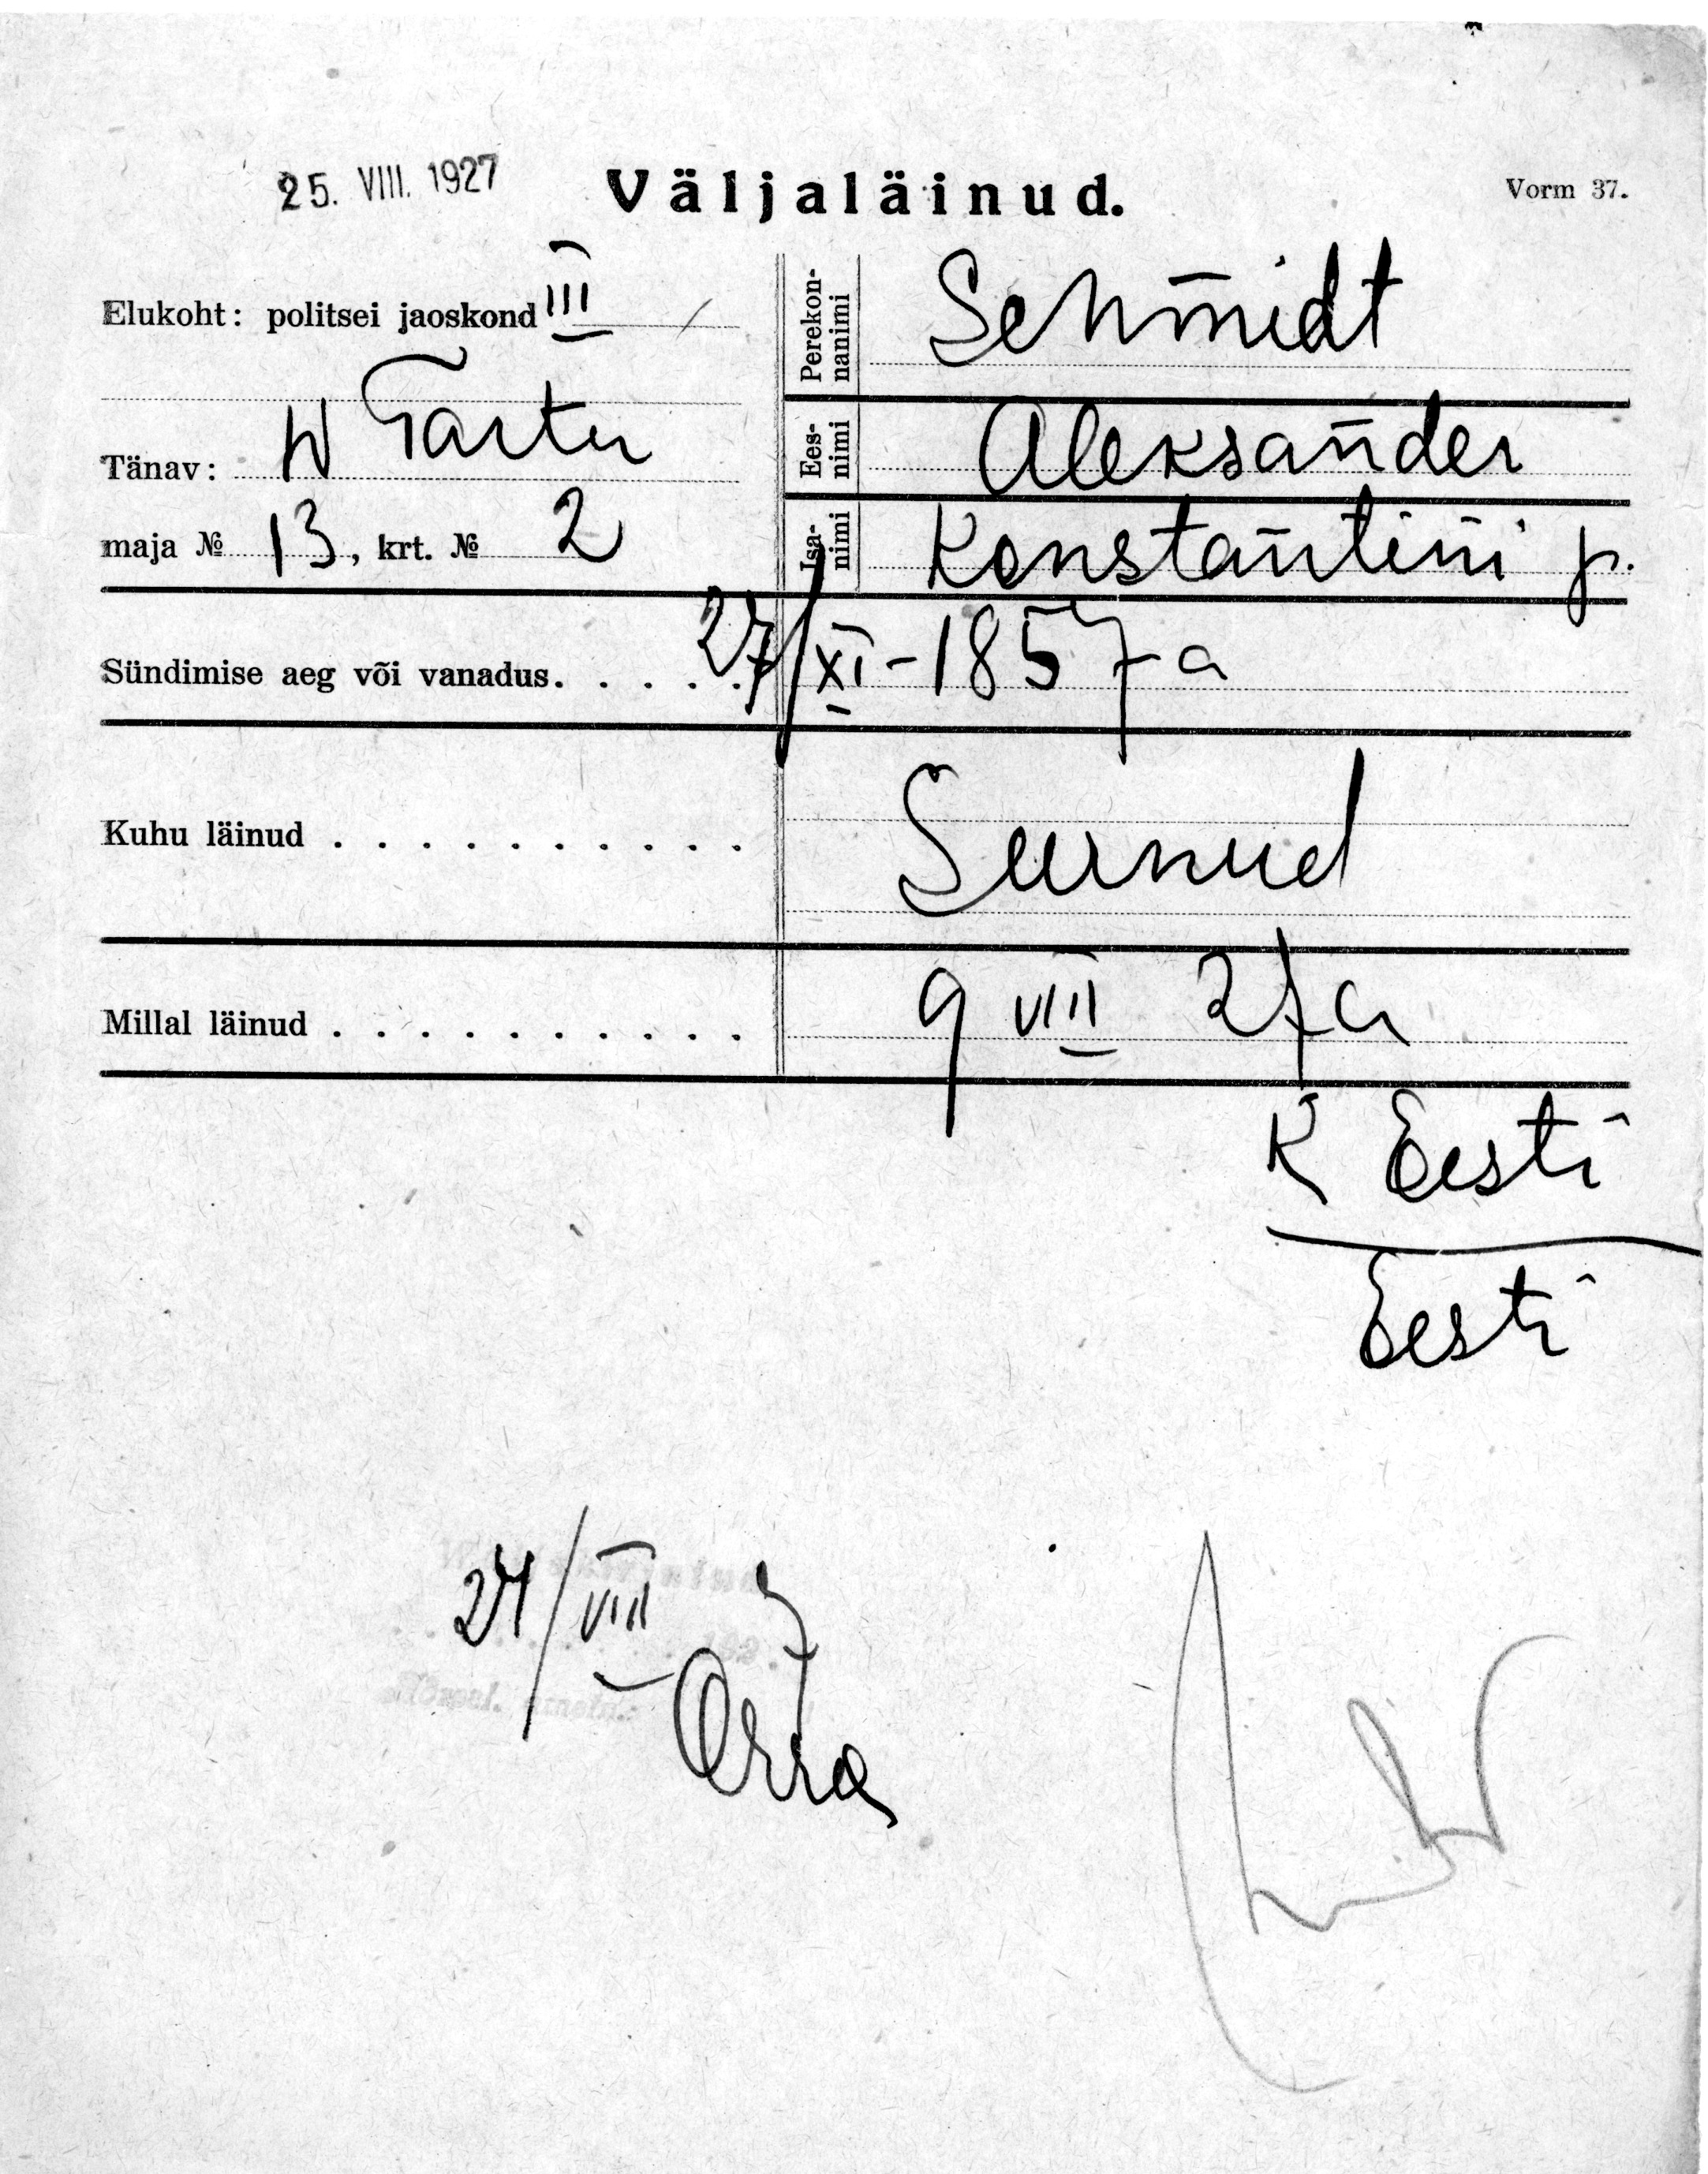 25. VIII. 1927
Väljaläinud.
Vorm 37.
Elukoht: politsei jaoskond III
Tänav: W Tartu
maja № 13, krt. № 2
Perekonnanimi Schmidt
Eesnimi Aleksander
Isanimi Konstantini p.
Sündimise aeg või vanadus. . . . . 27/XI-1857 a
Kuhu läinud . . . . . . . . . . Surnud
Millal läinud . . . . . . . . . . 9 VIII 27 a
K Eesti
Eesti
24/VIII 7